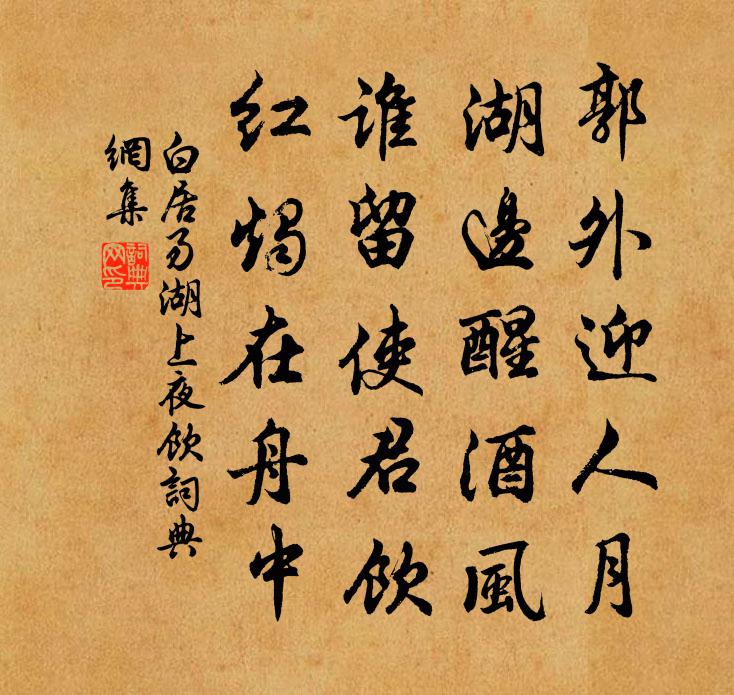 郭外迎人月
湖邊醒酒風
誰留使君飲
紅燭在舟中
白居易湖上夜飲詞典
網集
詞典
网印